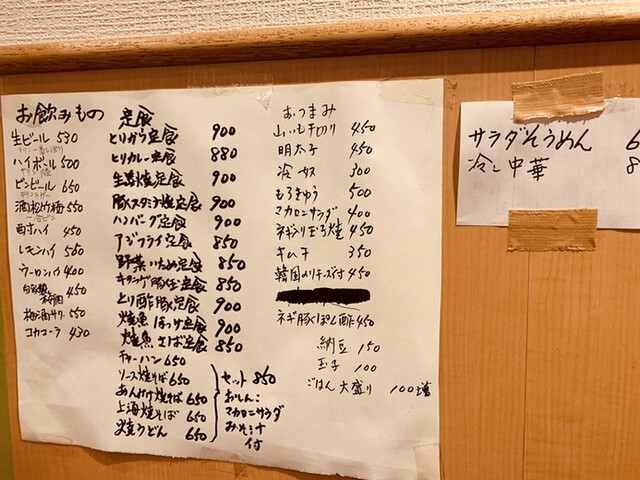 お飲みもの
生ビール 530
ハイボール 500
ビンビール 650
酒松竹梅 550
酎ハイ 450
レモンハイ 450
ウーロンハイ 400
450
梅酒サワー 550
コカコーラ 430
定食
とりから定食 900
とりカレー定食 880
生姜焼定食 900
豚スタミナ焼定食 900
ハンバーグ定食 900
アジフライ定食 850
野菜いため定食 850
定食 850
とり酢豚定食 900
焼魚 ほっけ定食 900
焼魚 さば定食 850
チャーハン 650
ソース焼そば 650
あんかけ焼そば 650
上海焼そば 650
焼うどん 650
セット 850
おしんこ
マカロニサラダ
みそ汁
付
おつまみ
山いも千切り 450
明太子 450
冷奴 300
もろきゅう 500
マカロニサラダ 400
ネギ入り玉子焼 450
キムチ 350
韓国のりチーズ付 450
ネギ豚くぽん酢 450
納豆 150
玉子 100
ごはん 大盛り 100増
サラダそうめん
冷し中華